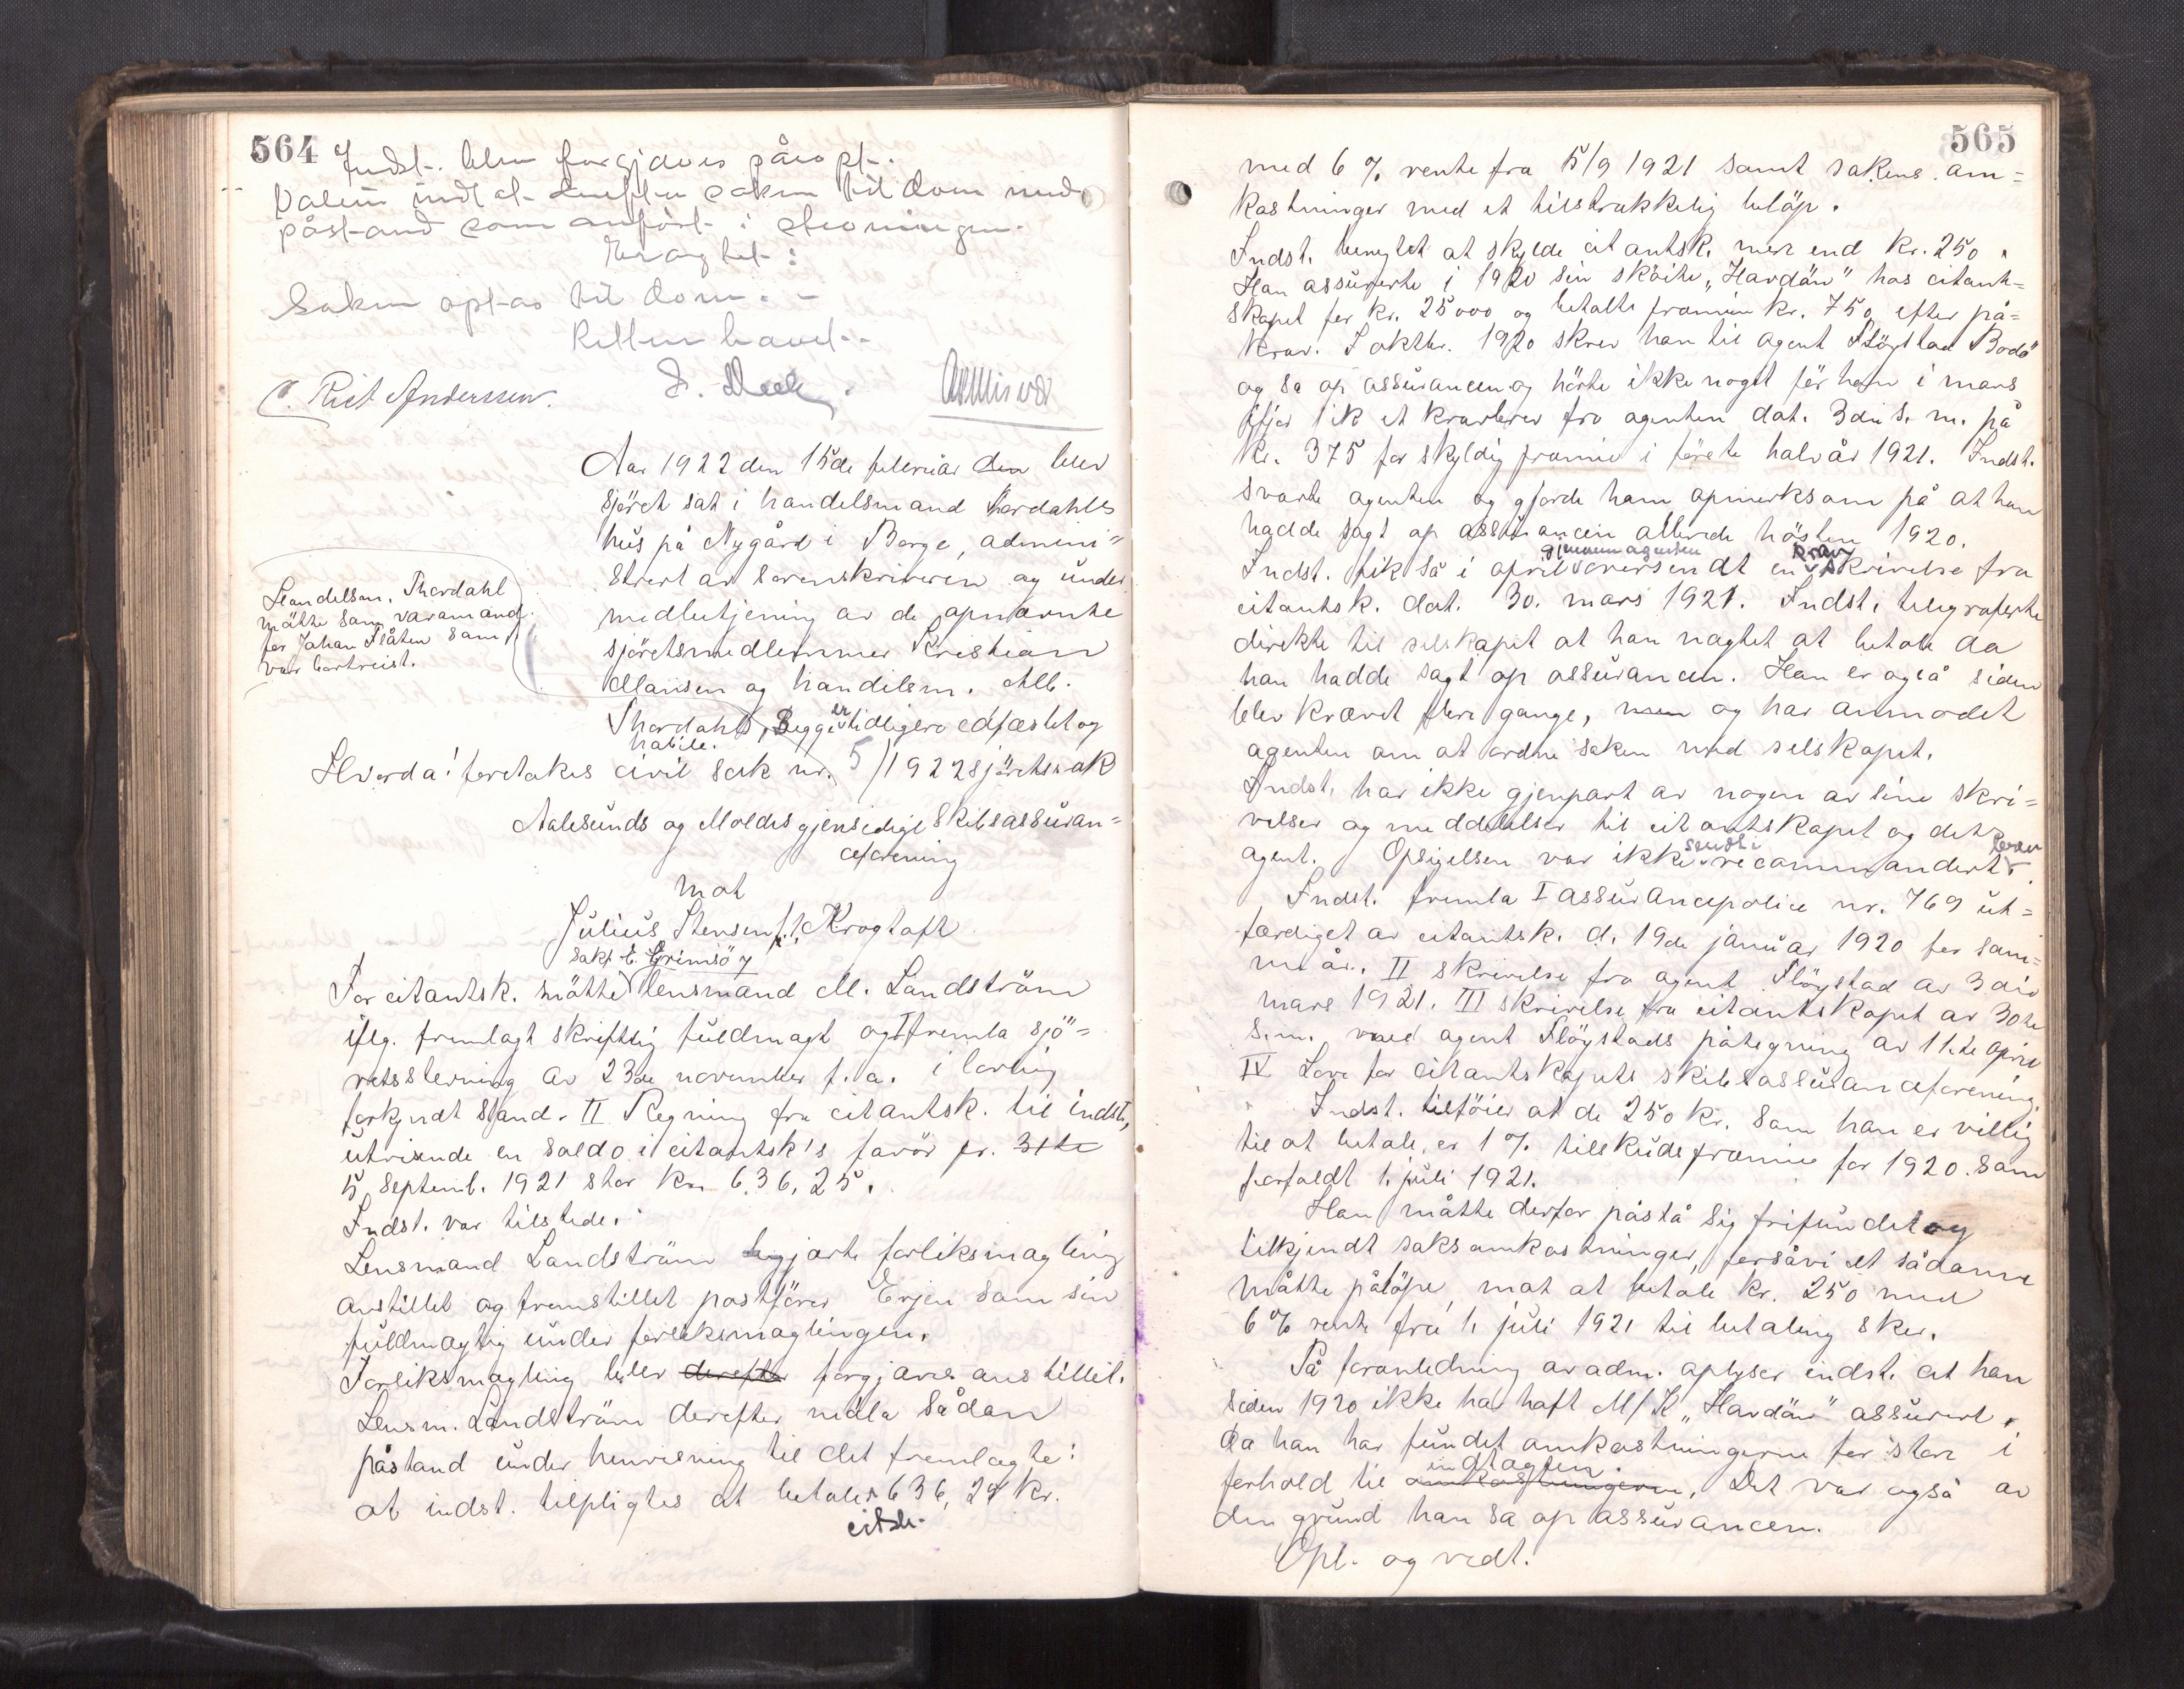 564
Indst. blev forgjæves påropt.
Dalen indlot derefter saken til dom med
påstand som anført i stevningen.
Eragtet:
Saken optas til dom. -
Retten hævet. -
Rich Anderssen.
Aar 1922 den 15de februar den blev
sjöret sat i handelsmand Thordahls
hus på Nygård i Borge, admini=
strert av sorenskriveren og under
medbetjening av de opnævnte
sjöretsmedlemmer Kristian
Marisen og handelsm. Alb.
Thordahl, Begge er tidligere edfæstet og
habile.
Handelsm. Thordahl
mötte som varamand
for Johan Flåten som
var bortreist.
Hvorda: foretakes civil sak nr. 5/1922 sjöretssak
Aalesunds og Moldes gjensidige Skibsassuran=
ceforening
mot
Julius Stensen f. t. Krogtoft
sakf. E. Grimsö
For citantsk. mötte lensmand M. Landström
iflg. fremlagt skriftlig fuldmagt og I fremla sjö=
retsstevning av 23de november f. a. i lovlig
forkyndt stand. II Regning fra citantsk. til indst.,
utvisende en saldo i citantsk's favör pr. 31te
5 Septemb. 1921 stor Kr. 636,25.
Indst. var tilstede.
Lensmand Landström begjærte forliksmægling
anstillet og fremstillet postförer Erjen som sin
fuldmægtig under forliksmæglingen.
Forliksmægling blev derefter forgjæves anstillet.
Lensm. Landström derefter nedla sådan
påstand under henvisning til det fremlagte:
at indst. tilpligtes at betale 636,25 kr.
citsk.
565
med 6 % rente fra 5/9 1921 samt sakens om=
kostninger med et tilstrækkelig belöp.
Indst. benegtet at skylde citantsk. mer end kr. 250.
Han assurerte i 1920 sin sköite "Havdön" hos citant=
skapet for kr. 25000 og betalte præmien kr. 750 efter på=
krav. I oktbr. 1920 skrev han til agent Flögstad Bodö
og sa op assurancen og hörte ikke noget för han i mars
ifjor fik et kravbrev fra agenten dat. 3die s. m. på
Kr. 375 for skyldig præmie i förste halvår 1921. Indst.
svarte agenten og gjorde ham opmerksom på at han
hadde sagt op assurancen allerede hösten 1920.
Indst. fik så i april gjennem agenten oversendt en krav skrivelse fra
citantsk. dat. 30. mars 1921. Indst. telegraferte
direkte til selskapet at han nægtet at betale da
han hadde sagt op assurancen. Han er også siden
blev krævet flere gange, men og har anmodet
agenten om at ordne saken med selskapet.
Indst. har ikke gjenpart av nogen av sine skri=
velser og meddelelser til citantskapet og dets
agent. Opsigelsen var ikke sendt i recommandert brev.
Indst. fremla I assurancepolice nr. 769 ut=
færdiget av citantsk. d. 19de januar 1920 for sam=
me år. II skrivelse fra agent Flögstad av 3die
mars 1921. III skrivelse fra citantskapet av 30te
s. m. med agent Flögstads påtegning av 11te april
IV Love for citantskapets skibsassuranceforening.
Indst. tilföier at de 250 kr. som han er villig
til at betale, er 1 % tilskudspræmie for 1920 som
forfaldt 1. juli 1921.
Han måtte derfor påstå sig frifundet og
tilkjendt saksomkostninger, forsåvidt sådanne
måtte påløpe, mot at betale kr. 250 med
6 % rente fra 1. juli 1921 til betaling sker.
På foranledning av adm. oplyser indst. at han
siden 1920 ikke har haft M/K "Havdön" assurert,
da han har fundet omkostningerne for store i
forhold til omkostningerne indtægten. Det var også av
den grund han sa op assurancen.
Opl. og vedt.